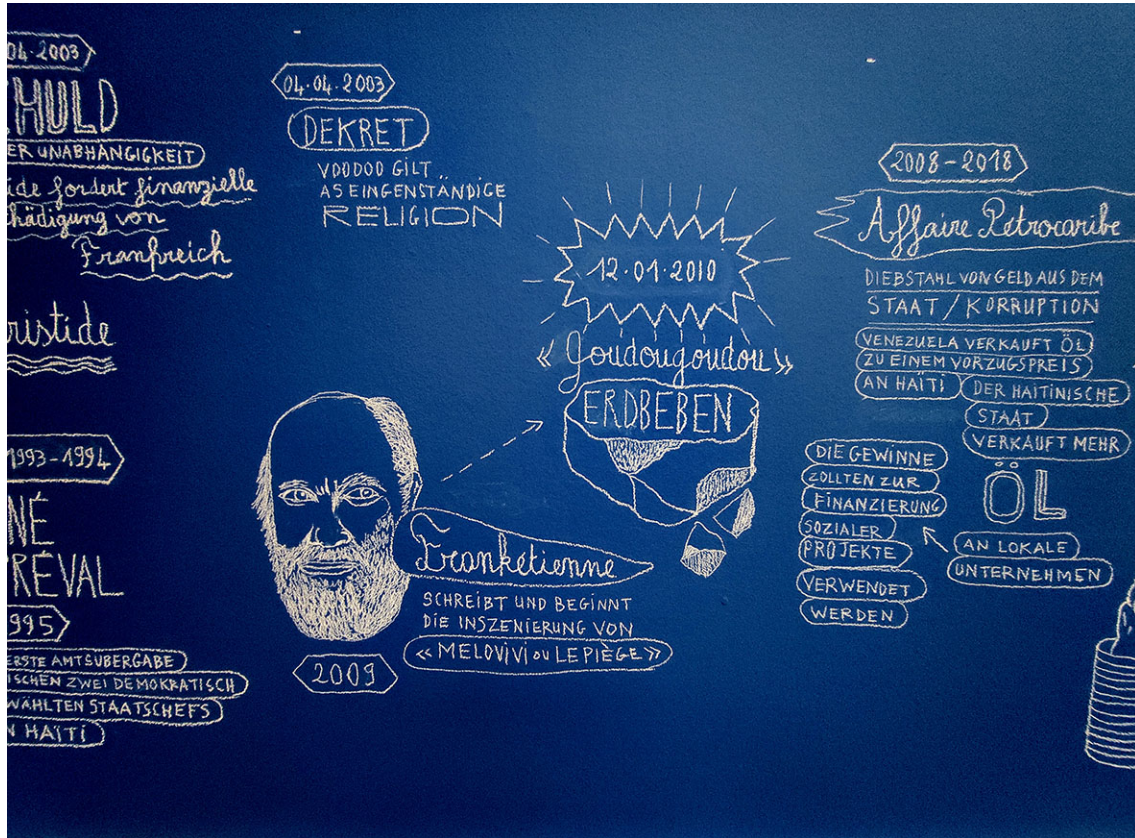 04·2003
HULD
ER UNABHÄNGIGKEIT
ide fordert finanzielle
hädigung von
Frankreich
ristide
1993-1994
NÉ
RÉVAL
995
ERSTE AMTSÜBERGABE
ISCHEN ZWEI DEMOKRATISCH
WÄHLTEN STAATSCHEFS
N HAÏTI
04·04·2003
DEKRET
VOODOO GILT
AS EINGENSTÄNDIGE
RELIGION
12·01·2010
« Goudougoudou »
ERDBEBEN
Franketienne
SCHREIBT UND BEGINNT
DIE INSZENIERUNG VON
« MELOVIVI OU LE PIÈGE »
2009
2008-2018
Affaire Petrocaribe
DIEBSTAHL VON GELD AUS DEM
STAAT / KORRUPTION
VENEZUELA VERKAUFT ÖL
ZU EINEM VORZUGSPREIS
AN HAÏTI
DER HAITINISCHE
STAAT
VERKAUFT MEHR
ÖL
AN LOKALE
UNTERNEHMEN
DIE GEWINNE
ZOLLTEN ZUR
FINANZIERUNG
SOZIALER
PROJEKTE
VERWENDET
WERDEN